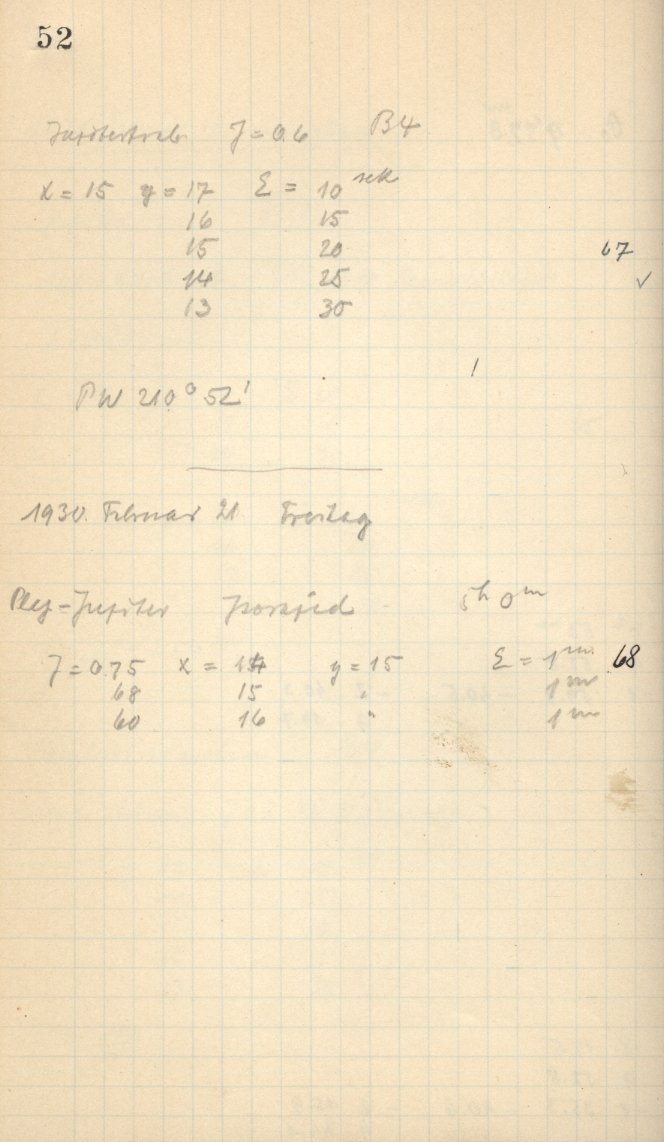 52
J = 0.6 B4
x = 15 y = 17 Σ = 10 sek
16 15
15 20 67
14 25 ✓
13 30
PW 210° 52'
1930. Februar 21 Freitag
Plej - Jupiter 5h 0m
J = 0.75 x = 14 y = 15 Σ = 1m 68
68 15 " 1m
60 16 " 1m